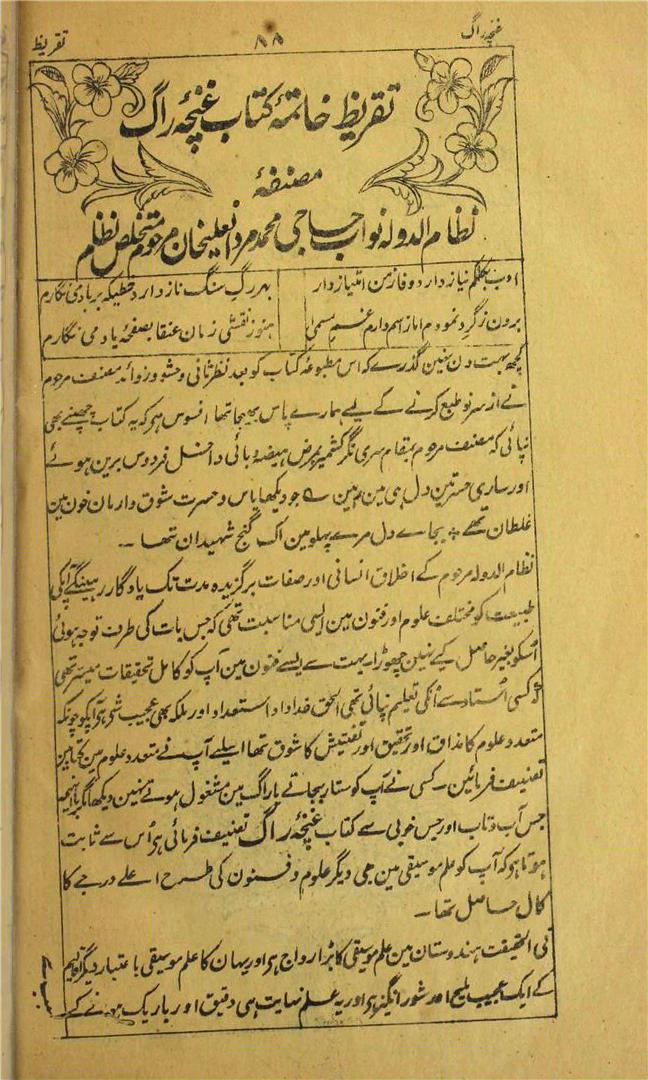 غنچۂ راگ
۸۸
تقریظ
تقریظ خاتمۂ کتاب غنچۂ راگ
مصنفۂ
نظام الدولہ نواب حاجی محمد مردانعلیخان مرحوم متخلص نظام
ادب بکلکم نیاز دارد وفا ز من امتیاز دارد
بہر رگِ سنگ ناز دارد خطیکہ بر باد می نگارم
برون ز گرد نمودم اما ز اسم دارم غم مسمی
ہنوز نقشی ز مان عنقا بصفحۂ یاد می نگارم
کچھ بہت دن نہین گذرے کہ اس مطبوعہ کتاب کو بعد نظر ثانی و حشو و زوائد مصنف مرحوم
نے از سر نو طبع کرنے کے لیے ہمارے پاس بھیجا تھا افسوس ہی کہ یہ کتاب چھپنے بھی
نپائی کہ مصنف مرحوم بمقام سری نگر کشمیر بمرض ہیضہ وبائی داخل فردوس برین ہوئے
اور ساری حسرتین دل ہی مین رہین ے جو دیکھا یاس و حسرت شوق و ارمان خون مین
غلطان تھے ؞ بجاے دل مرے پہلو مین اک گنج شہیدان تھا ۔
نظام الدولہ مرحوم کے اخلاق انسانی اور صفات برگزیدہ مدت تک یادگار رہینگے آپکی
طبیعت کو مختلف علوم اور فنون مین ایسی مناسبت تھی کہ جس بات کی طرف توجہ ہوئی
اُسکو بغیر حاصل کیے نہین چھوڑا بہت سے ایسے فنون مین آپ کو کامل تحقیقات میسر تھی
کسی اُستاد سے اُنکی تعلیم نپائی تھی الحق خداداد استعداد اور ملکہ بھی عجیب شی ہی آپکو چونکہ
متعدد علوم کا مذاق اور تحقیق اور تفتیش کا شوق تھا اسلیے آپ نے متعدد علوم مین کتابین
تصنیف فرمائین ۔ کسی نے آپ کو ستار بجاتے یا راگ مین مشغول ہوتے نہین دیکھا مگر باینہمہ
جس آب و تاب اور جس خوبی سے کتاب غنچۂ راگ تصنیف فرمائی ہی اُس سے ثابت
ہوتا ہی کہ آپ کو علم موسیقی مین بھی دیگر علوم و فنون کی طرح اعلے درجے کا
کمال حاصل تھا ۔
فی الحقیقت ہندوستان مین علم موسیقی کا بڑا رواج ہی اور یہان کا علم موسیقی با عتبار دیگر اقالیم
کے ایک عجیب ملیح اور شور انگیز ہی اور یہ علم نہایت ہی دقیق اور باریک ہونے کے